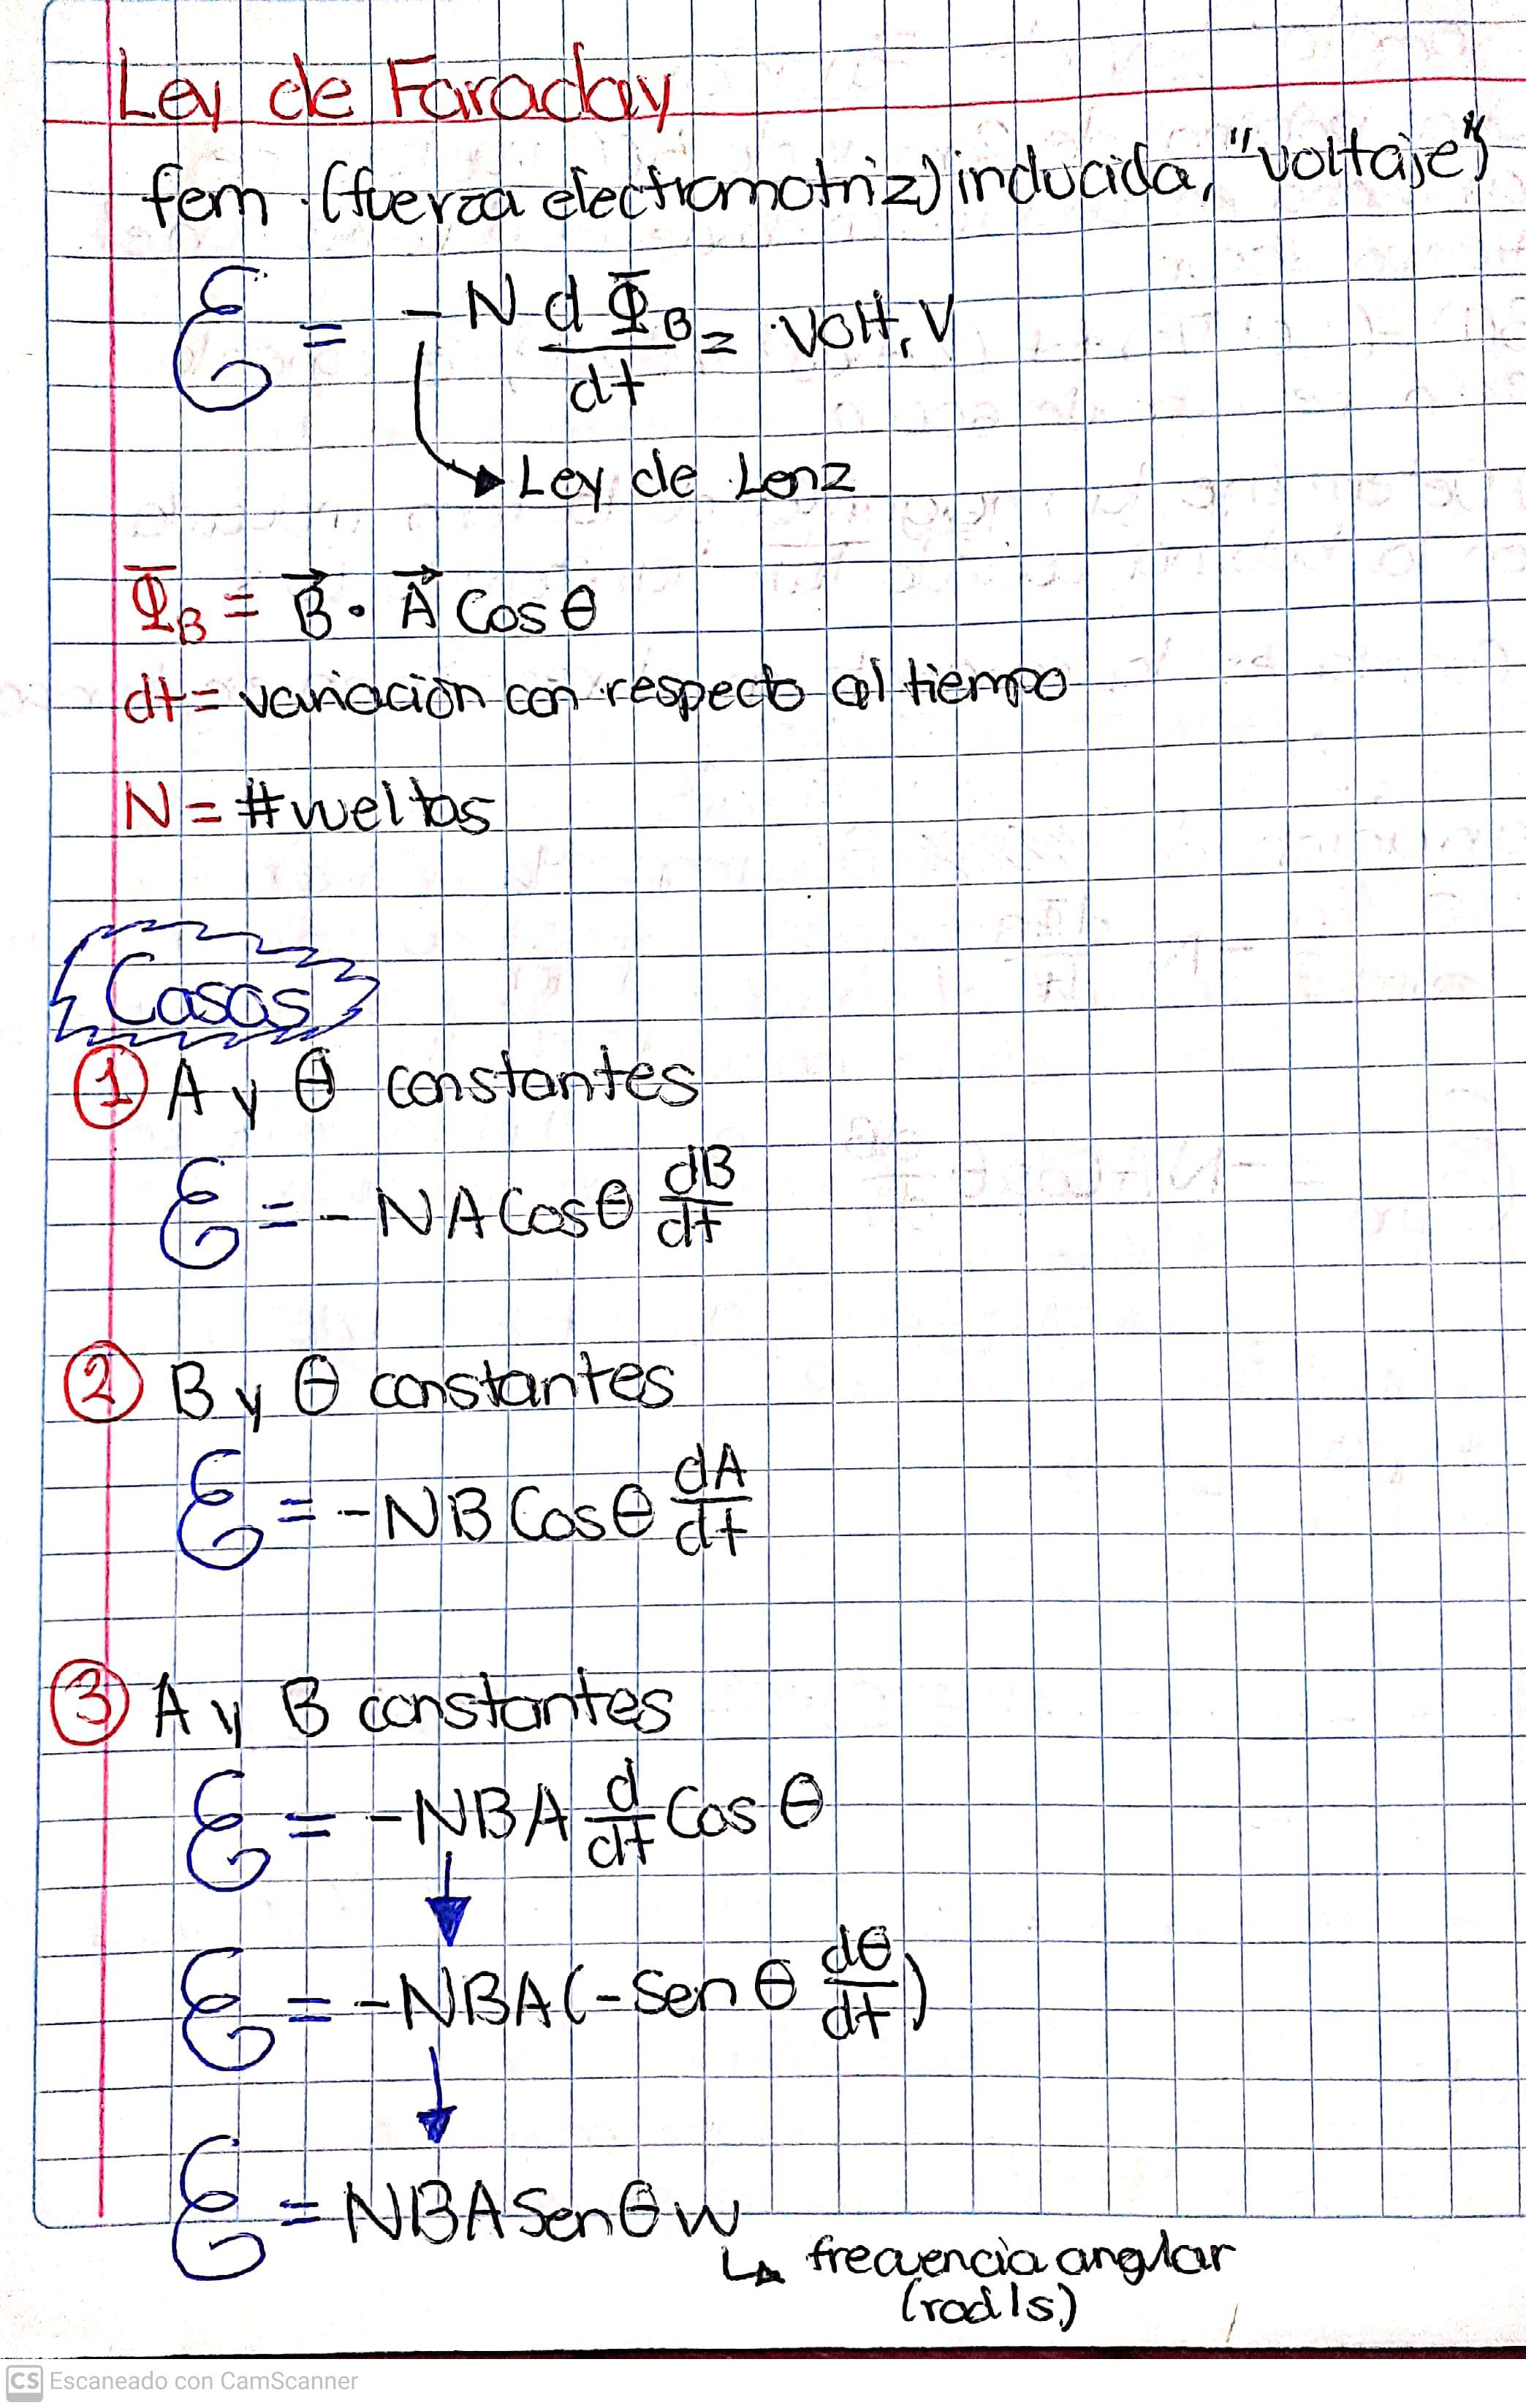 Ley de Faraday
fem (fuerza electromotriz) inducida, "voltaje"
ℰ = -N dΦB/dt = volt, V
Ley de Lenz
ΦB = B⃗ · A⃗ Cos θ
dt = variación con respecto al tiempo
N = # vueltas
Casos
① A y θ constantes
ℰ = - NA Cos θ dB/dt
② B y θ constantes
ℰ = -NB Cos θ dA/dt
③ A y B constantes
ℰ = -NBA d/dt Cos θ
ℰ = -NBA (-Sen θ dθ/dt)
ℰ = NBA Sen θ w
frecuencia anglar
(rad/s)
CS Escaneado con CamScanner